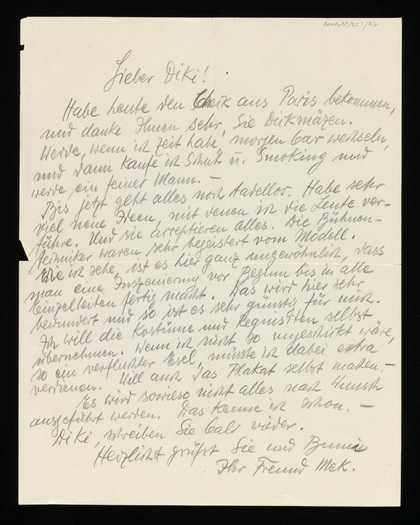 Lieber Diki!
Habe heute den Cheik aus Paris bekommen,
und danke Ihnen sehr, Sie Dikmäzen.
Werde, wenn ich Zeit hab', morgen bar wechseln,
und dann kaufe ich Schuh u. Smoking und
werde ein feiner Mann. —
Bis jetzt geht alles noch tadellos. Habe sehr
viel neue Ideen, mit denen ich die Leute ver-
führe. Und sie acceptieren alles. Die Bühnen-
techniker waren sehr begeistert vom Modell.
Wie ich sehe, ist es hier ganz ungewöhnlich, dass
man eine Inszenierung vor Beginn bis in alle
einzelheiten fertig macht. Das wird hier sehr
bewundert und so ist es sehr günstig für mich.
Ich will die Kostüme und Requisiten selbst
übernehmen. Wenn ich nicht so ungeschickt wäre,
so ein verfluchter Esel, müsste ich dabei extra
verdienen. Will auch das Plakat selbst machen, —
Es wird sowieso nicht alles nach Wunsch
ausgeführt werden. Das kenne ich schon. —
Diki schreiben Sie bald wieder.
Herzlichst grüßt Sie und
Ihr Freund Mek.